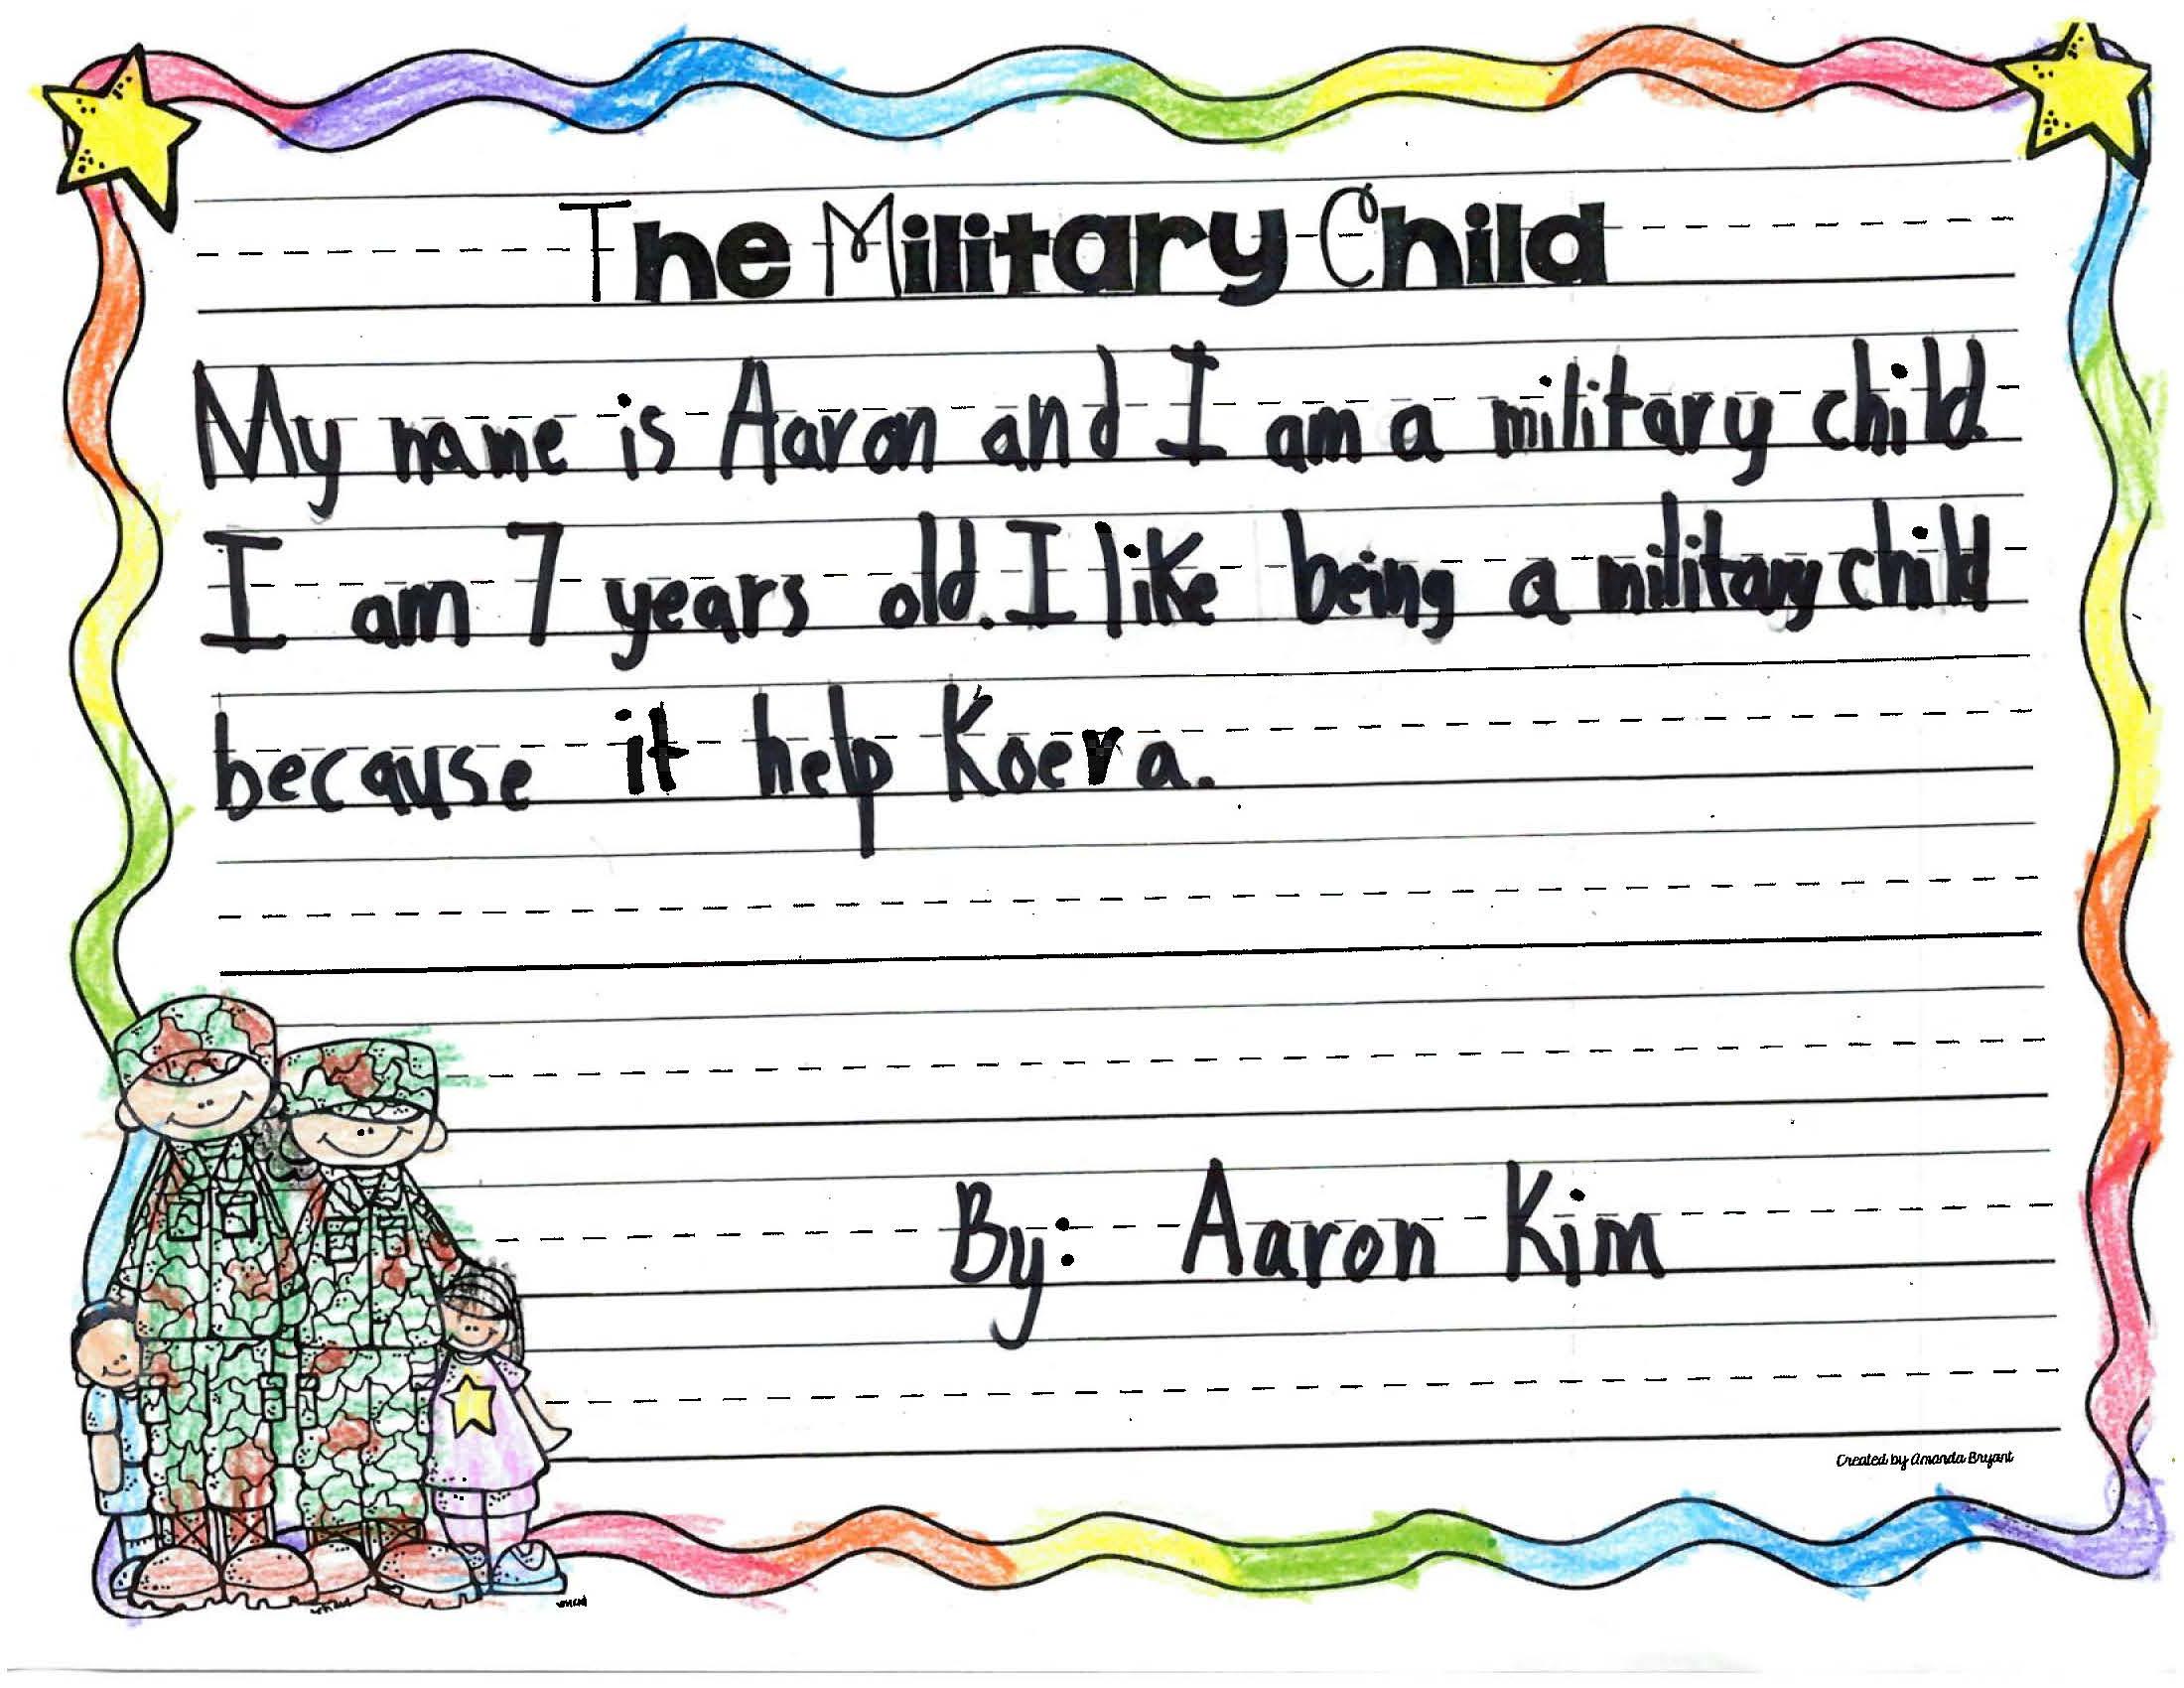 The Military Child
My name is Aaron and I am a military child.
I am 7 years old. I like being a military child
because it help Koera.
By: Aaron Kim
Created by Amanda Bryant